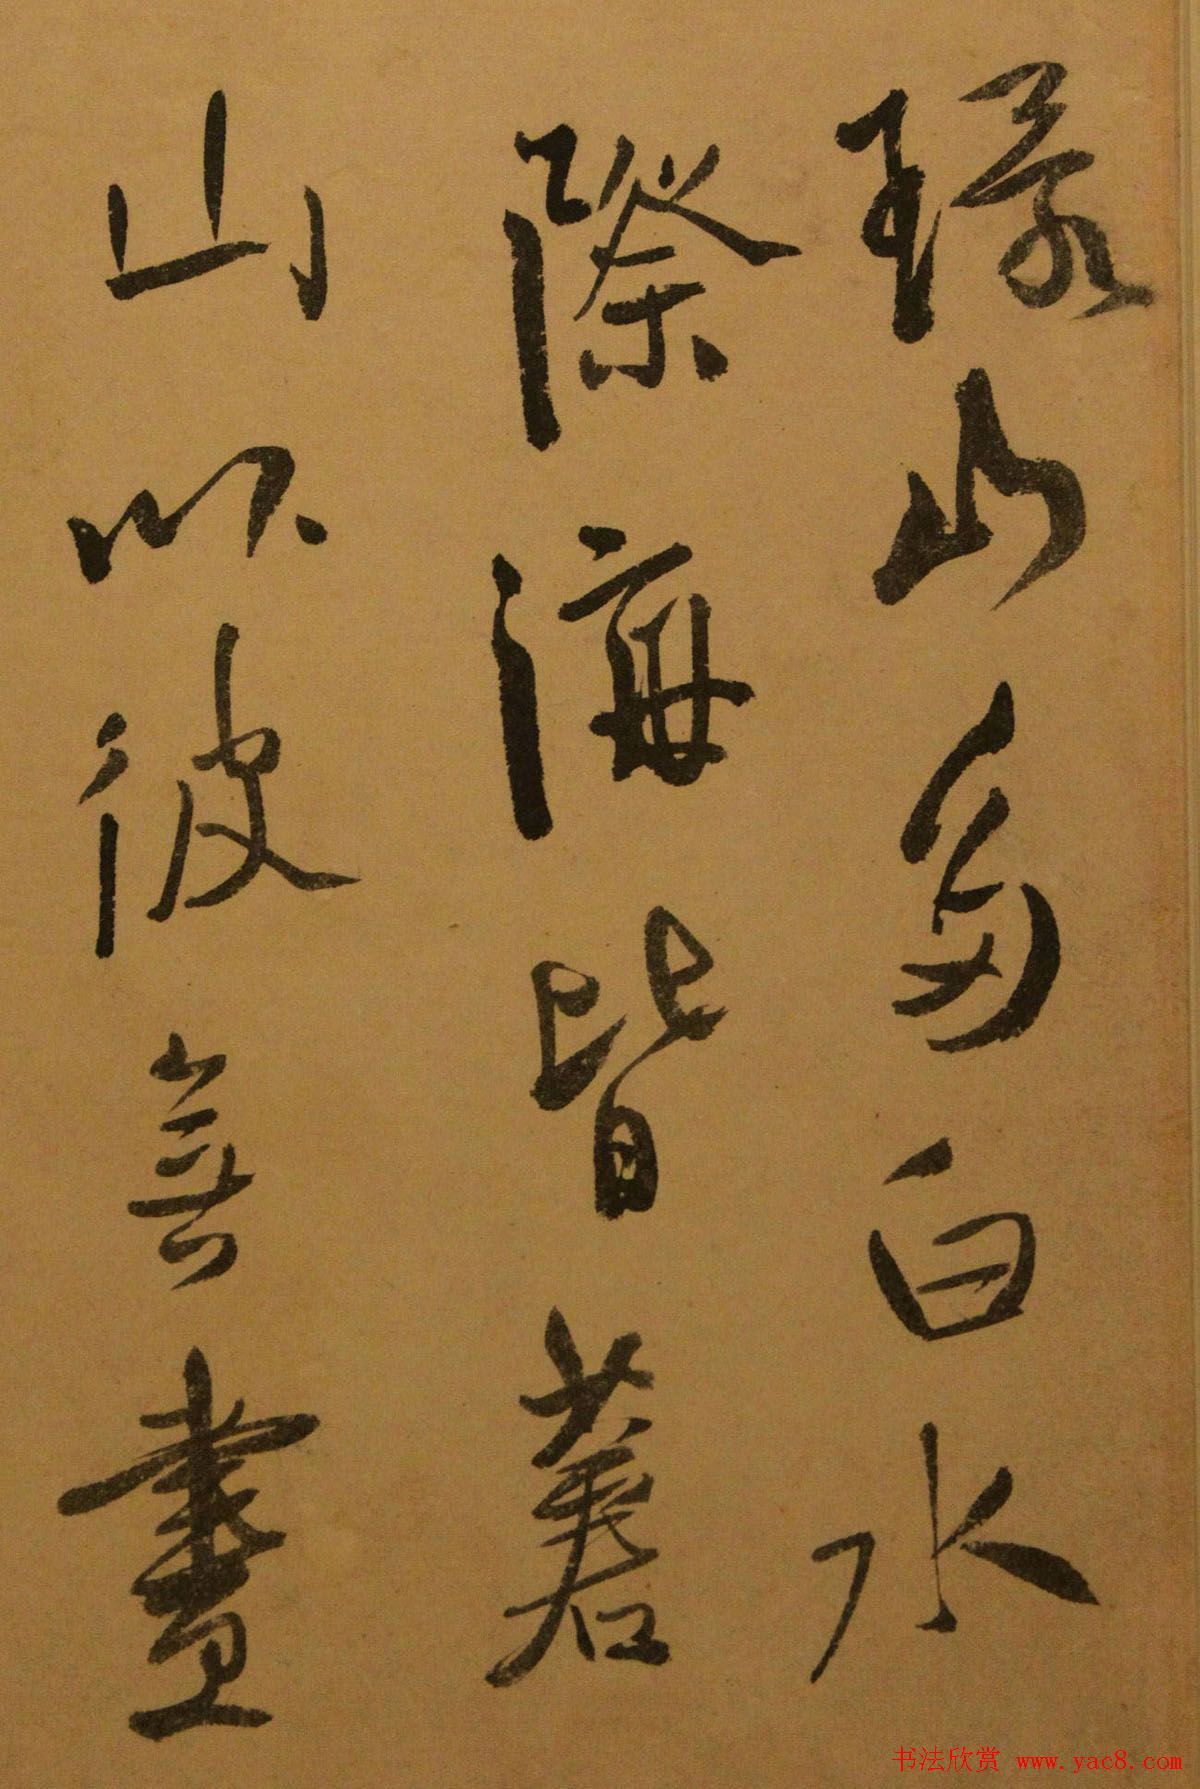 環山多白水
際海皆蒼
山以彼無盡
书法欣赏 www.yac8.com